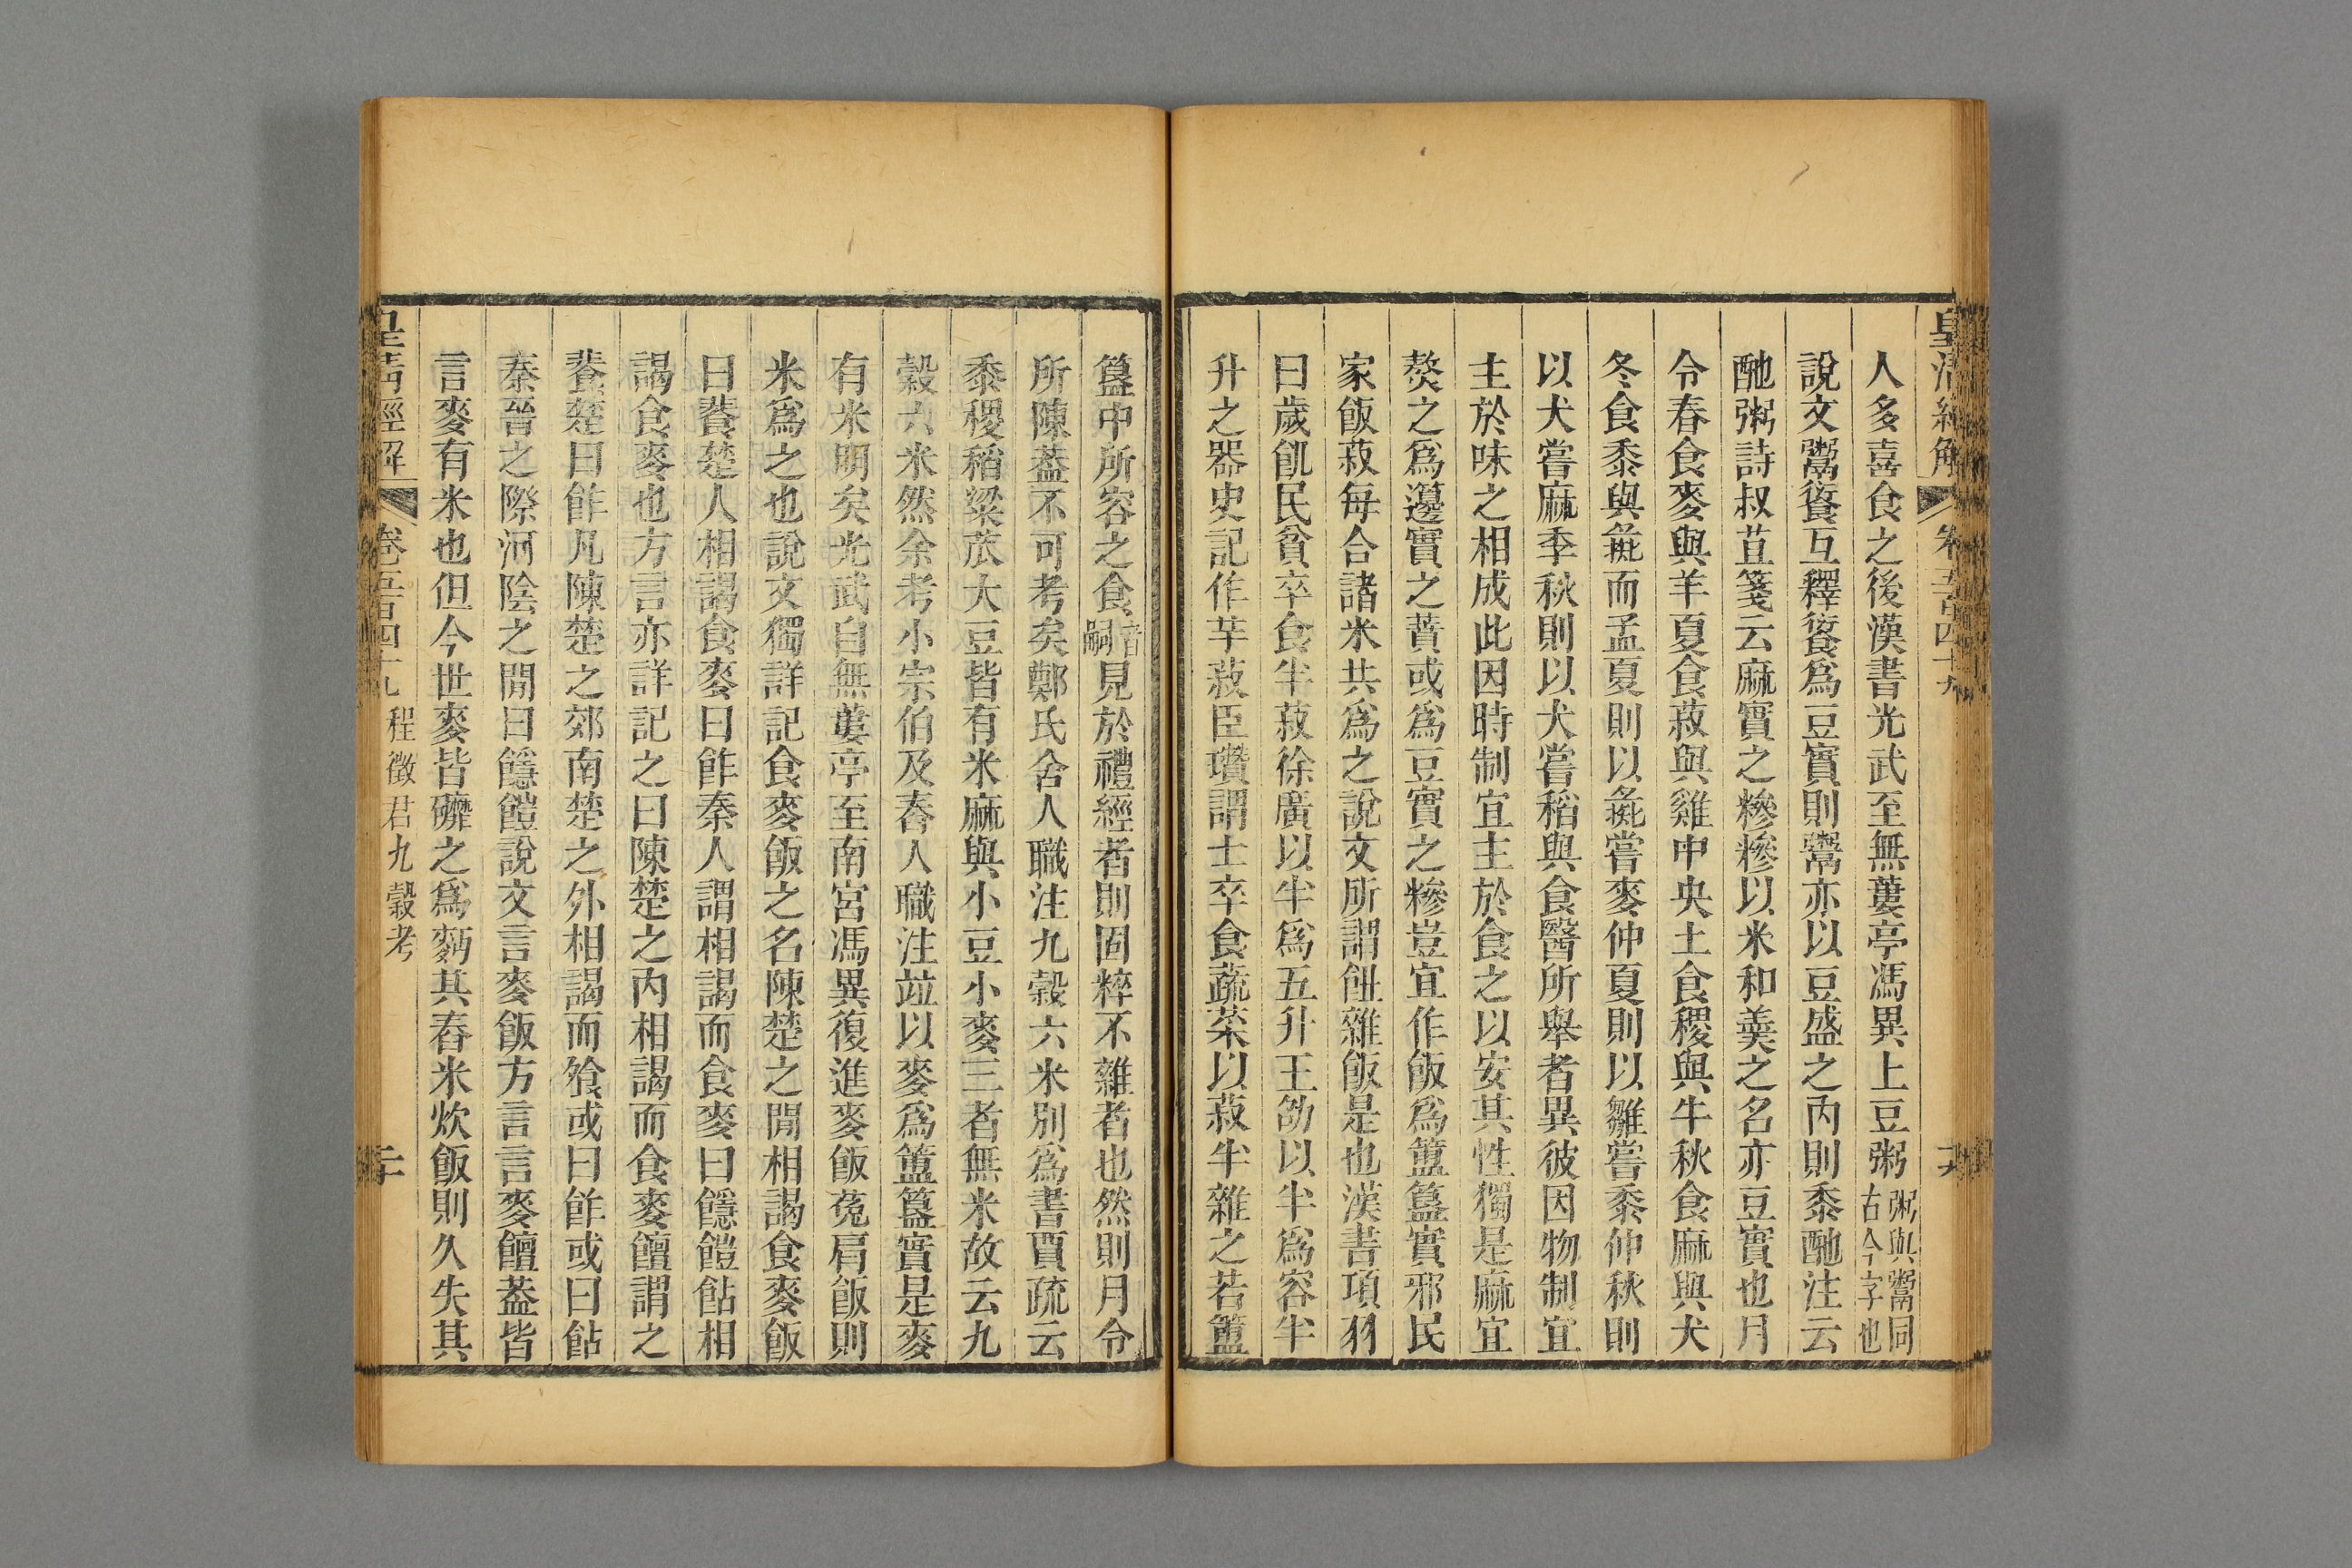 皇清經解 卷五百四十九
人多喜食之後漢書光武至無蔞亭馮異上豆粥粥與鬻同古今字也
說文鬻餥互釋餥爲豆實則鬻亦以豆盛之內則黍酏注云
酏粥詩叔苴箋云麻實之糝糝以米和羹之名亦豆實也月
令春食麥與羊夏食菽與雞中央土食稷與牛秋食麻與犬
冬食黍與彘而孟夏則以彘嘗麥仲夏則以雛嘗黍仲秋則
以犬嘗麻季秋則以犬嘗稻與食醫所舉者異彼因物制宜
主於味之相成此因時制宜主於食之以安其性獨是麻宜
熬之爲籩實之蕡或爲豆實之糝豈宜作飯爲簠簋實邪民
家飯菽每合諸米共爲之說文所謂飷雜飯是也漢書項羽
曰歲飢民貧卒食半菽徐廣以半爲五升王劭以半爲容半
升之器史記作芋菽臣瓚謂士卒食蔬菜以菽半雜之若簠
簋中所容之食音嗣見於禮經者則固粹不雜者也然則月令
所陳蓋不可考矣鄭氏舍人職注九穀六米別爲書賈疏云
黍稷稻粱苽大豆皆有米麻與小豆小麥三者無米故云九
穀六米然余考小宗伯及舂人職注竝以麥爲簠簋實是麥
有米明矣光武自無蔞亭至南宮馮異復進麥飯菟肩飯則
米爲之也說文獨詳記食麥飯之名陳楚之閒相謁食麥飯
曰餥楚人相謁食麥曰飵秦人謂相謁而食麥曰䭡䭓䬯相
謁食麥也方言亦詳記之曰陳楚之內相謁而食麥饘謂之
餥楚曰飵凡陳楚之郊南楚之外相謁而飧或曰飵或曰䬯
秦晉之際河陰之閒曰䭡䭓說文言麥飯方言言麥饘蓋皆
言麥有米也但今世麥皆礳之爲麪其舂米炊飯則久失其
皇清經解 卷五百四十九 程徵君九穀考 二十